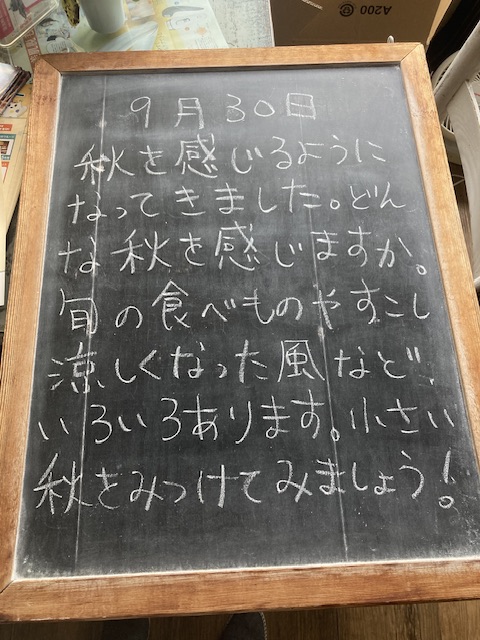 A200
9月30日
秋を感じるように
なってきました。どん
な秋を感じますか。
旬の食べものやすこし
涼しくなった風など、
いろいろあります。小さい
秋をみつけてみましょう!